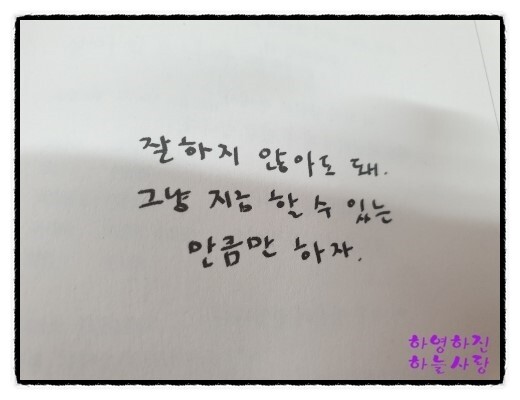 잘하지 않아도 돼.
그냥 지금 할 수 있는
만큼만 하자.
하영하진
하늘사랑